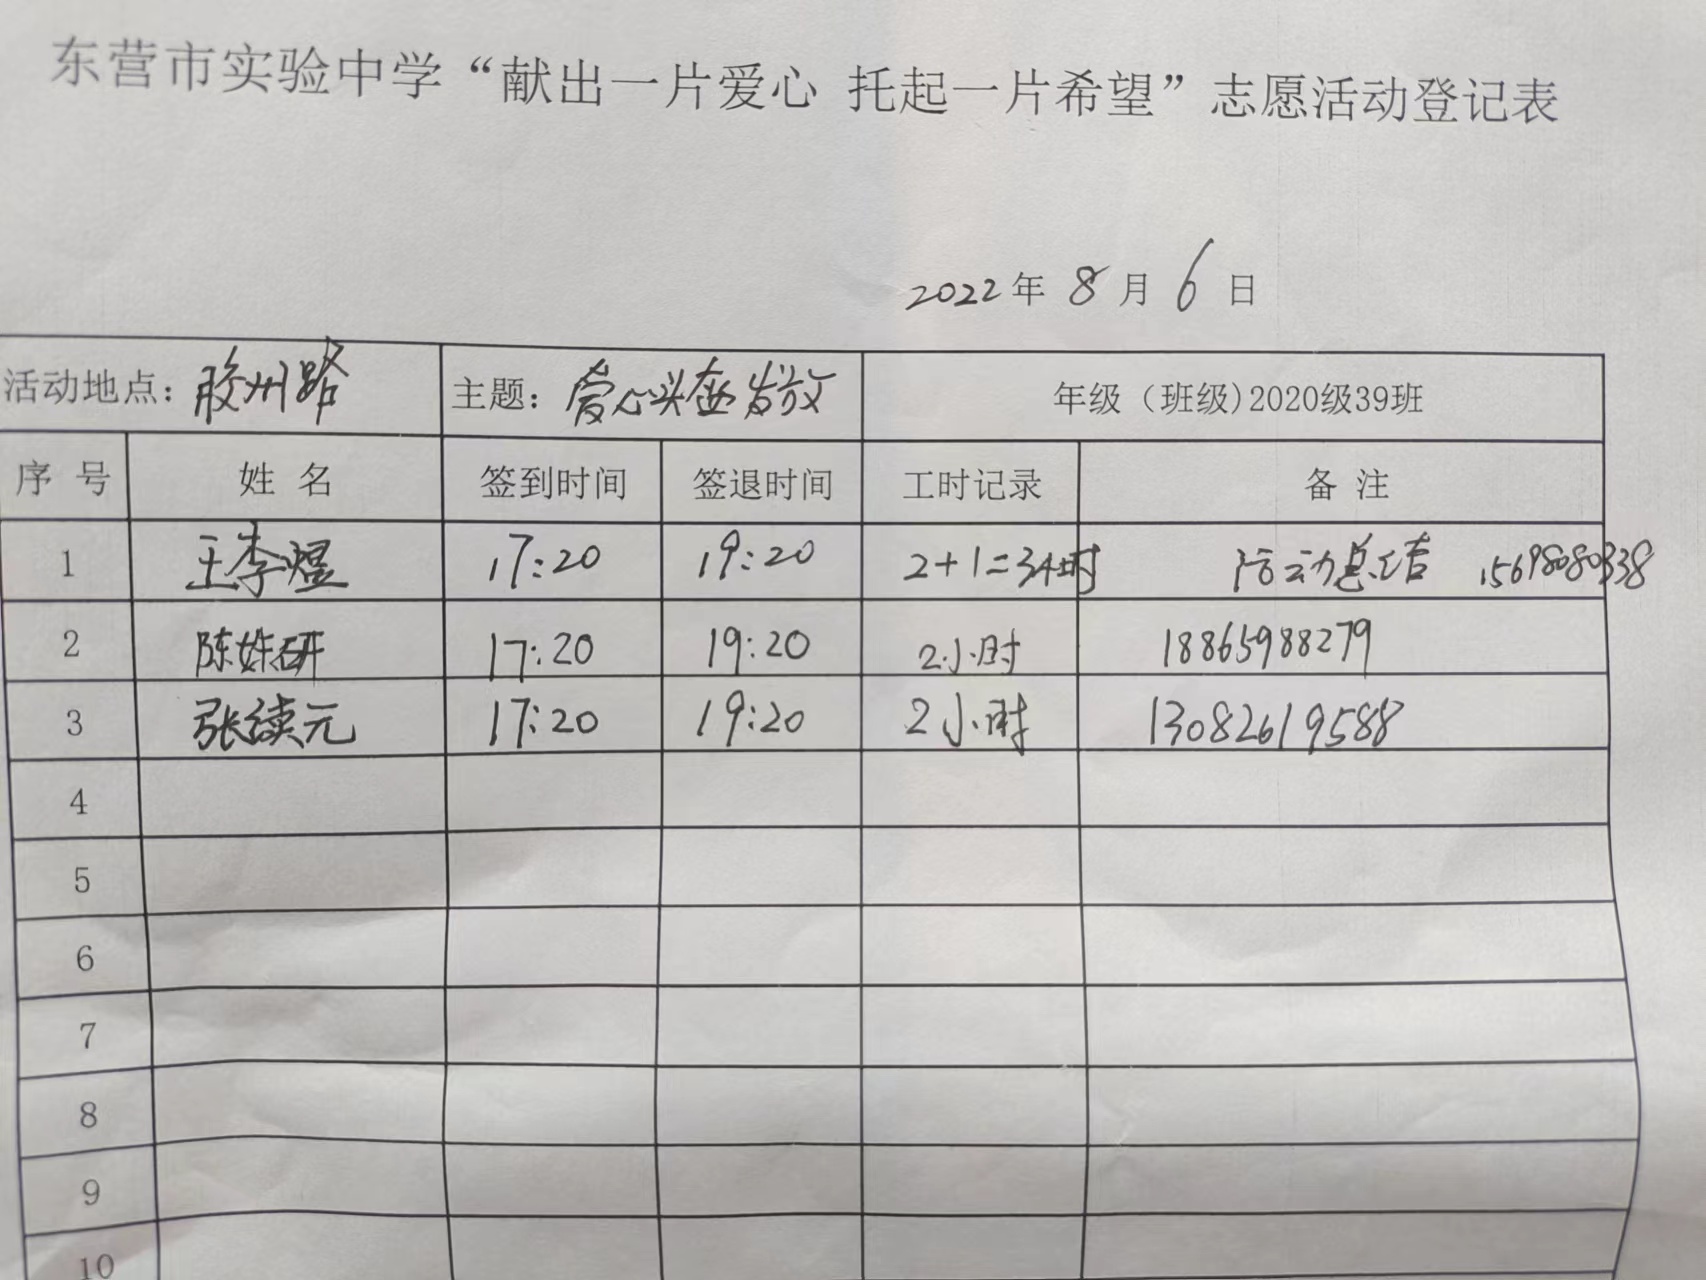 东营市实验中学“献出一片爱心 托起一片希望”志愿活动登记表
2022年 8 月 6 日
活动地点：胶州路 主题：爱心头盔发放 年级（班级)2020级39班
序 号 姓 名 签到时间 签退时间 工时记录 备 注
1 王李煜 17:20 19:20 2+1=3小时 活动总结 15698080338
2 陈姝研 17:20 19:20 2小时 18865988279
3 张续元 17:20 19:20 2小时 13082619588
4
5
6
7
8
9
10